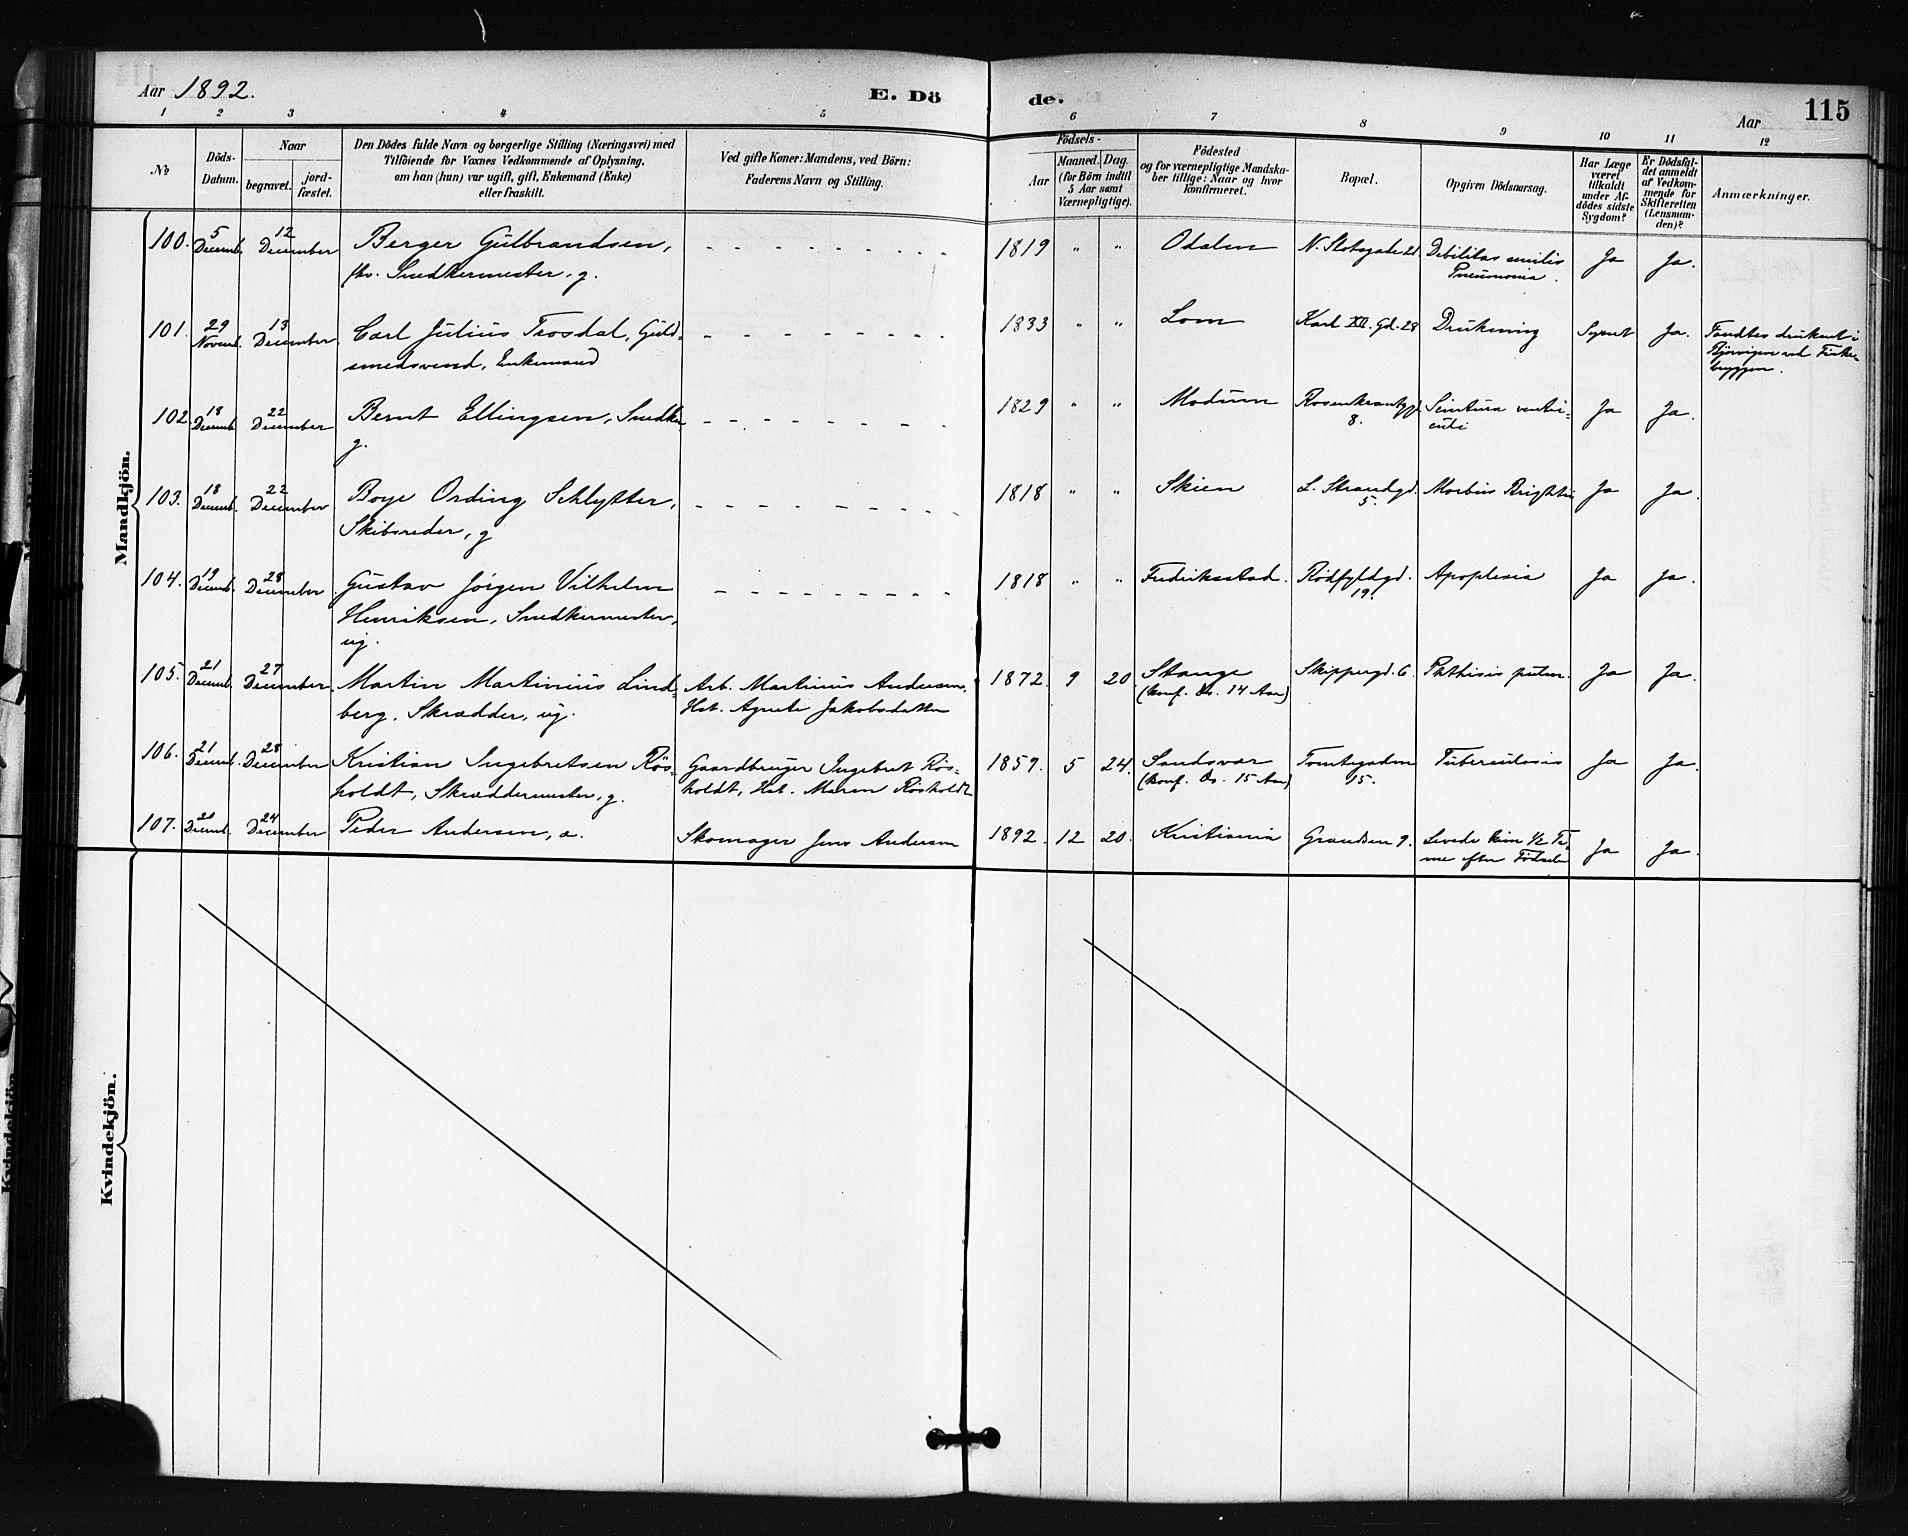 Aar 1892.
E. Dö
de.
Aar
115
1 2 3 4 5 6 7 8 9 10 11 12
No
Döds-Datum.
Naar
begravet.
jordfæstet.
Den Dödes fulde Navn og borgerlige Stilling (Næringsvei) med
Tilföiende for Voxnes Vedkommende af Oplysning,
om han (hun) var ugift, gift, Enkemand (Enke)
eller fraskilt.
Ved gifte Koner: Mandens, ved Börn:
Faderens Navn og Stilling.
Födsels-
Aar
Maaned. Dag.
(for Börn indtil
5 Aar samt
Værnepligtige).
Födested
og for værnepligtige Mandska-
ber tillige: Naar og hvor
konfirmeret.
Bopæl.
Opgiven Dödsaarsag.
Har Læge
været
tilkaldt
under Af-
dödes sidste
Sygdom?
Er Dödsfal-
det anmeldt
af Vedkom-
mende for
Skifteretten
(Lensman-
den)?
Anmærkninger.
Mandkjön.
100. 5 Decemb. 12 December Berger Gulbrandsen, 1819 " " Odalen N. Slotsgade 21 Debilitas senilis Ja Ja.
fhv. Snedkermester, g. Pneumonia.
101. 29 Novemb. 13 December Carl Julius Trosdal, Guld- 1833 " " Lom Karl XII. Gd. 28 Drukning Synet Ja. Fandtes druknet i
smedsvend, Enkemand Bjørvigen ved Fiske-
bryggen.
102. 18 Decemb. 22 December Bernt Ellingsen, Snedker 1829 " " Modum Rosenkrantzgd. 8. ventri- Ja Ja.
g. culi
103. 18 Decemb. 22 December Boye Ording Schlytter, 1818 " " Skien L. Strandgd. 5. Morbus Brightii Ja Ja.
Skibsreder, g
104. 19 Decemb. 28 December Gustav Jörgen Vilhelm 1818 " " Fredriksstad. Rödfyldgd. 19. Apoplexia Ja Ja.
Henriksen, Snedkermester,
ug.
105. 21 Decemb. 27 December Martin Martinius Lind- Arb. Martinus Andersen, 1872. 9 20. Stange Skippergd. 6. Phthisis pulm. Ja Ja.
berg, Skrædder, ug. Hst. Agnete Jakobsdatter (Konf. Do. 14 Aar)
106. 21 Decemb. 28 December Kristian Ingebretsen Røs- Gaardbruger Ingebret Røs- 1859. 5 24. Sandsvær Tomtegaden 15. Tuberculosis Ja Ja.
holdt, Skræddermester, g. holdt, Hst. Maren Røsholdt (Konf. Do. 15 Aar)
107. 20 Decemb. 24 December Peder Andersen, æ. Skomager Jens Andersen 1892. 12 20. Kristiania Grændsen 9. Levede kun 1/2 Ti- Ja Ja.
me efter Födselen
Kvindekjön.